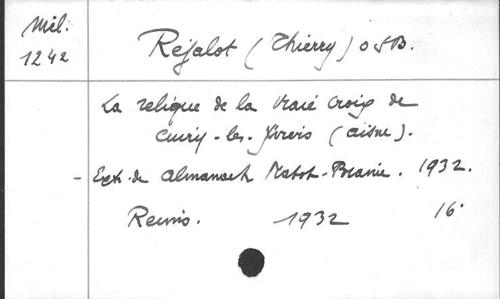 Mél.
1242
Réjalot (Thierry) O S B.
La relique de la Vraie Croix de
Cuiry-les-Iviers (Aisne).
- Ext. de Almanach Matot-Braine. 1932.
Reims. 1932 16°